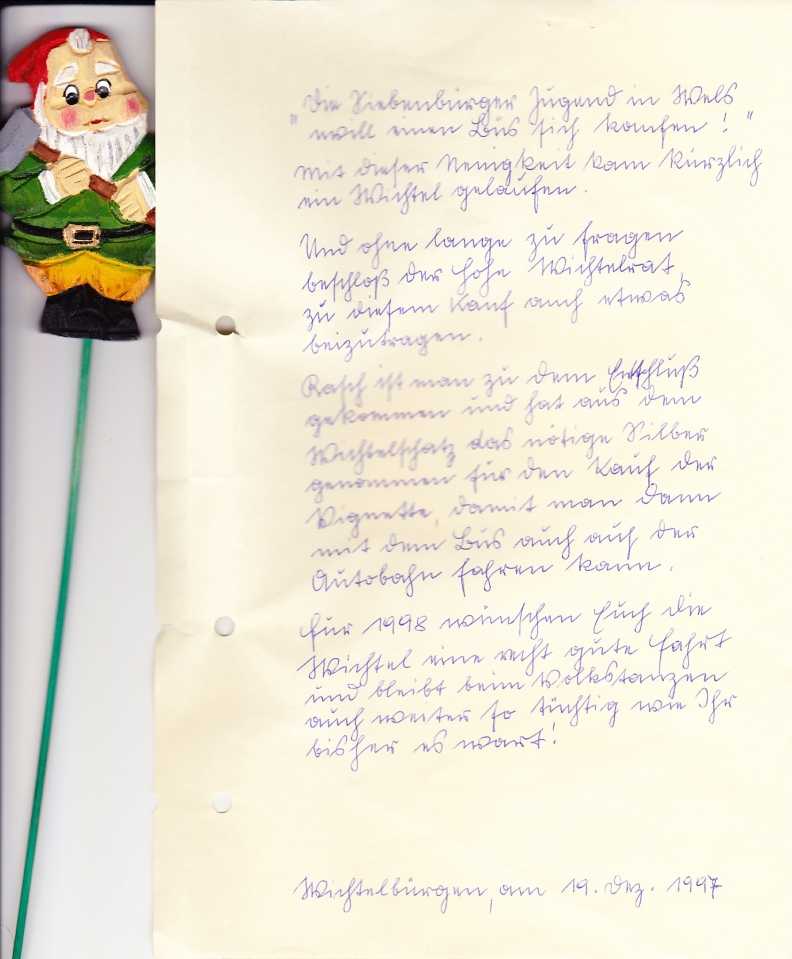 Die Siebenbürger Jugend in Wels
" will einen Bus sich kaufen! "
Mit dieser Neuigkeit kam kürzlich
ein Wichtel gelaufen.
Und ohne lange zu fragen
beschloß der hohe Wichtelrat,
zu diesem Kauf auch etwas
beizutragen.
Rasch ist man zu dem Entschluß
gekommen und hat aus dem
Wichtelschatz das nötige Silber
genommen für den Kauf der
Vignette, damit man dann
mit dem Bus auch auf der
Autobahn fahren kann.
Für 1998 wünschen Euch die
Wichtel eine recht gute Fahrt
und bleibt beim Volkstanzen
auch weiter so tüchtig wie Ihr
bisher es wart!
Wichtelbürgen, am 19. Dez. 1997